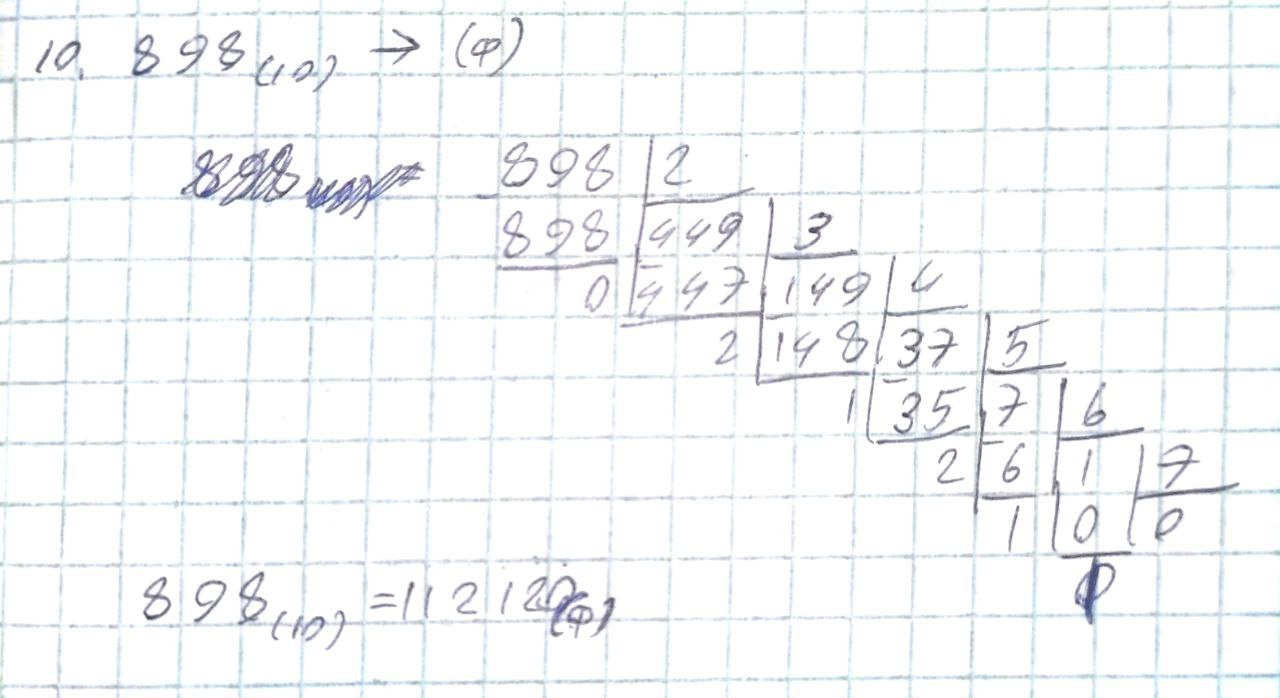 10. 898(10) → (ф)
898 | 2
898 | 449 | 3
0 | 447 | 149 | 4
2 | 148 | 37 | 5
1 | 35 | 7 | 6
2 | 6 | 1 | 7
1 | 0 | 0
1
898(10) = 112120(ф)